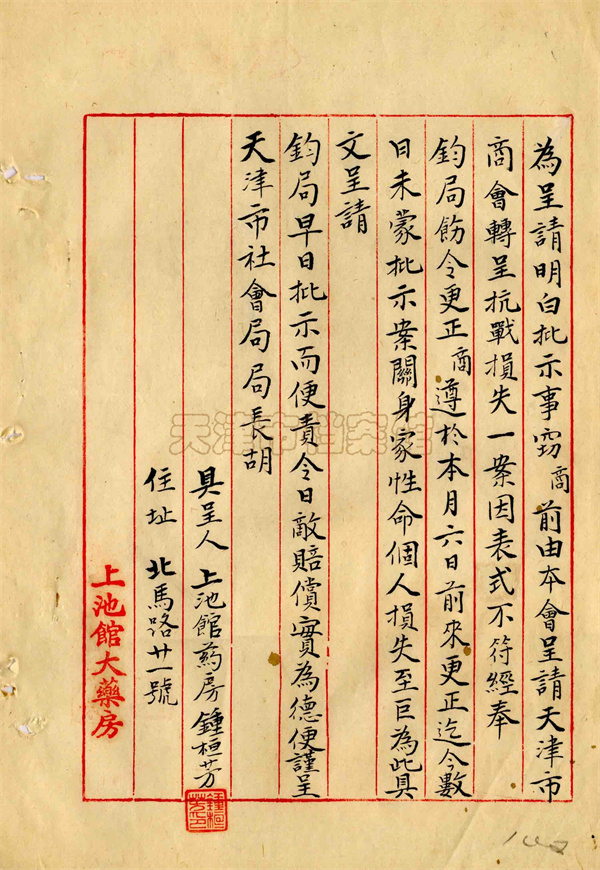 為呈請明白批示事竊商前由本會呈請天津市
商會轉呈抗戰損失一案因表式不符經奉
鈞局飭令更正商遵於本月六日前來更正迄今數
日未蒙批示案關身家性命個人損失至巨為此具
文呈請
鈞局早日批示而便責令日敵賠償實為德便謹呈
天津市社會局局長胡
具呈人 上池館药房 鍾桓芳
住址 北馬路廿一號
上池館大藥房
鍾桓芳印
天津市档案馆